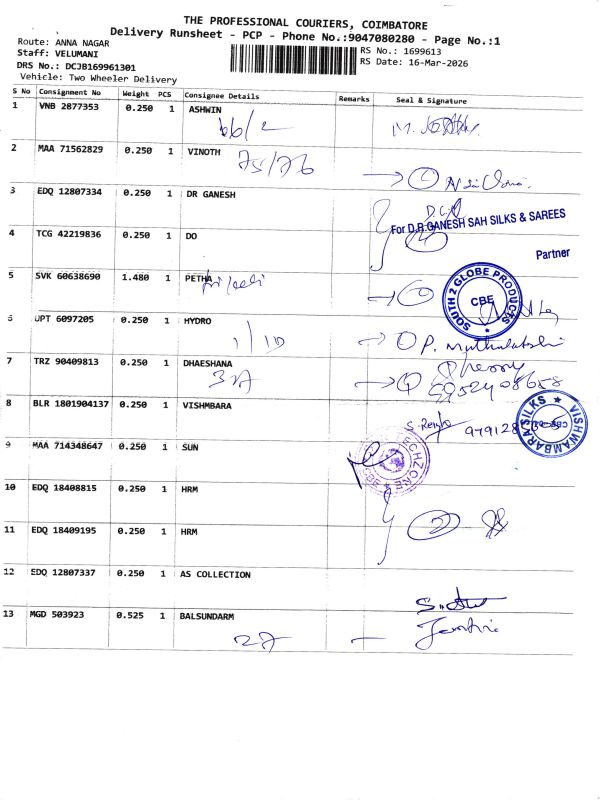 THE PROFESSIONAL COURIERS, COIMBATORE
Delivery Runsheet - PCP - Phone No.:9047080280 - Page No.:1
Route: ANNA NAGAR
Staff: VELUMANI
DRS No.: DCJB169961301
Vehicle: Two Wheeler Delivery
RS No.: 1699613
RS Date: 16-Mar-2026
S No Consignment No Weight PCS Consignee Details Remarks Seal & Signature
1 VNB 2877353 0.250 1 ASHWIN
66/2
2 MAA 71562829 0.250 1 VINOTH
75/76
3 EDQ 12807334 0.250 1 DR GANESH
For D.R.GANESH SAH SILKS & SAREES
Partner
4 TCG 42219836 0.250 1 DO
5 SVK 60638690 1.480 1 PETHA
SOUTH 2 GLOBE PRODUCTS
CBE
6 UPT 6097205 0.250 1 HYDRO
1/10 P. Muthulakshmi
7 TRZ 90409813 0.250 1 DHAESHANA
37
8 BLR 1801904137 0.250 1 VISHMBARA
VISHWAMBARA SILKS
9 MAA 714348647 0.250 1 SUN
10 EDQ 18408815 0.250 1 HRM
11 EDQ 18409195 0.250 1 HRM
2
12 EDQ 12807337 0.250 1 AS COLLECTION
13 MGD 503923 0.525 1 BALSUNDARM
27